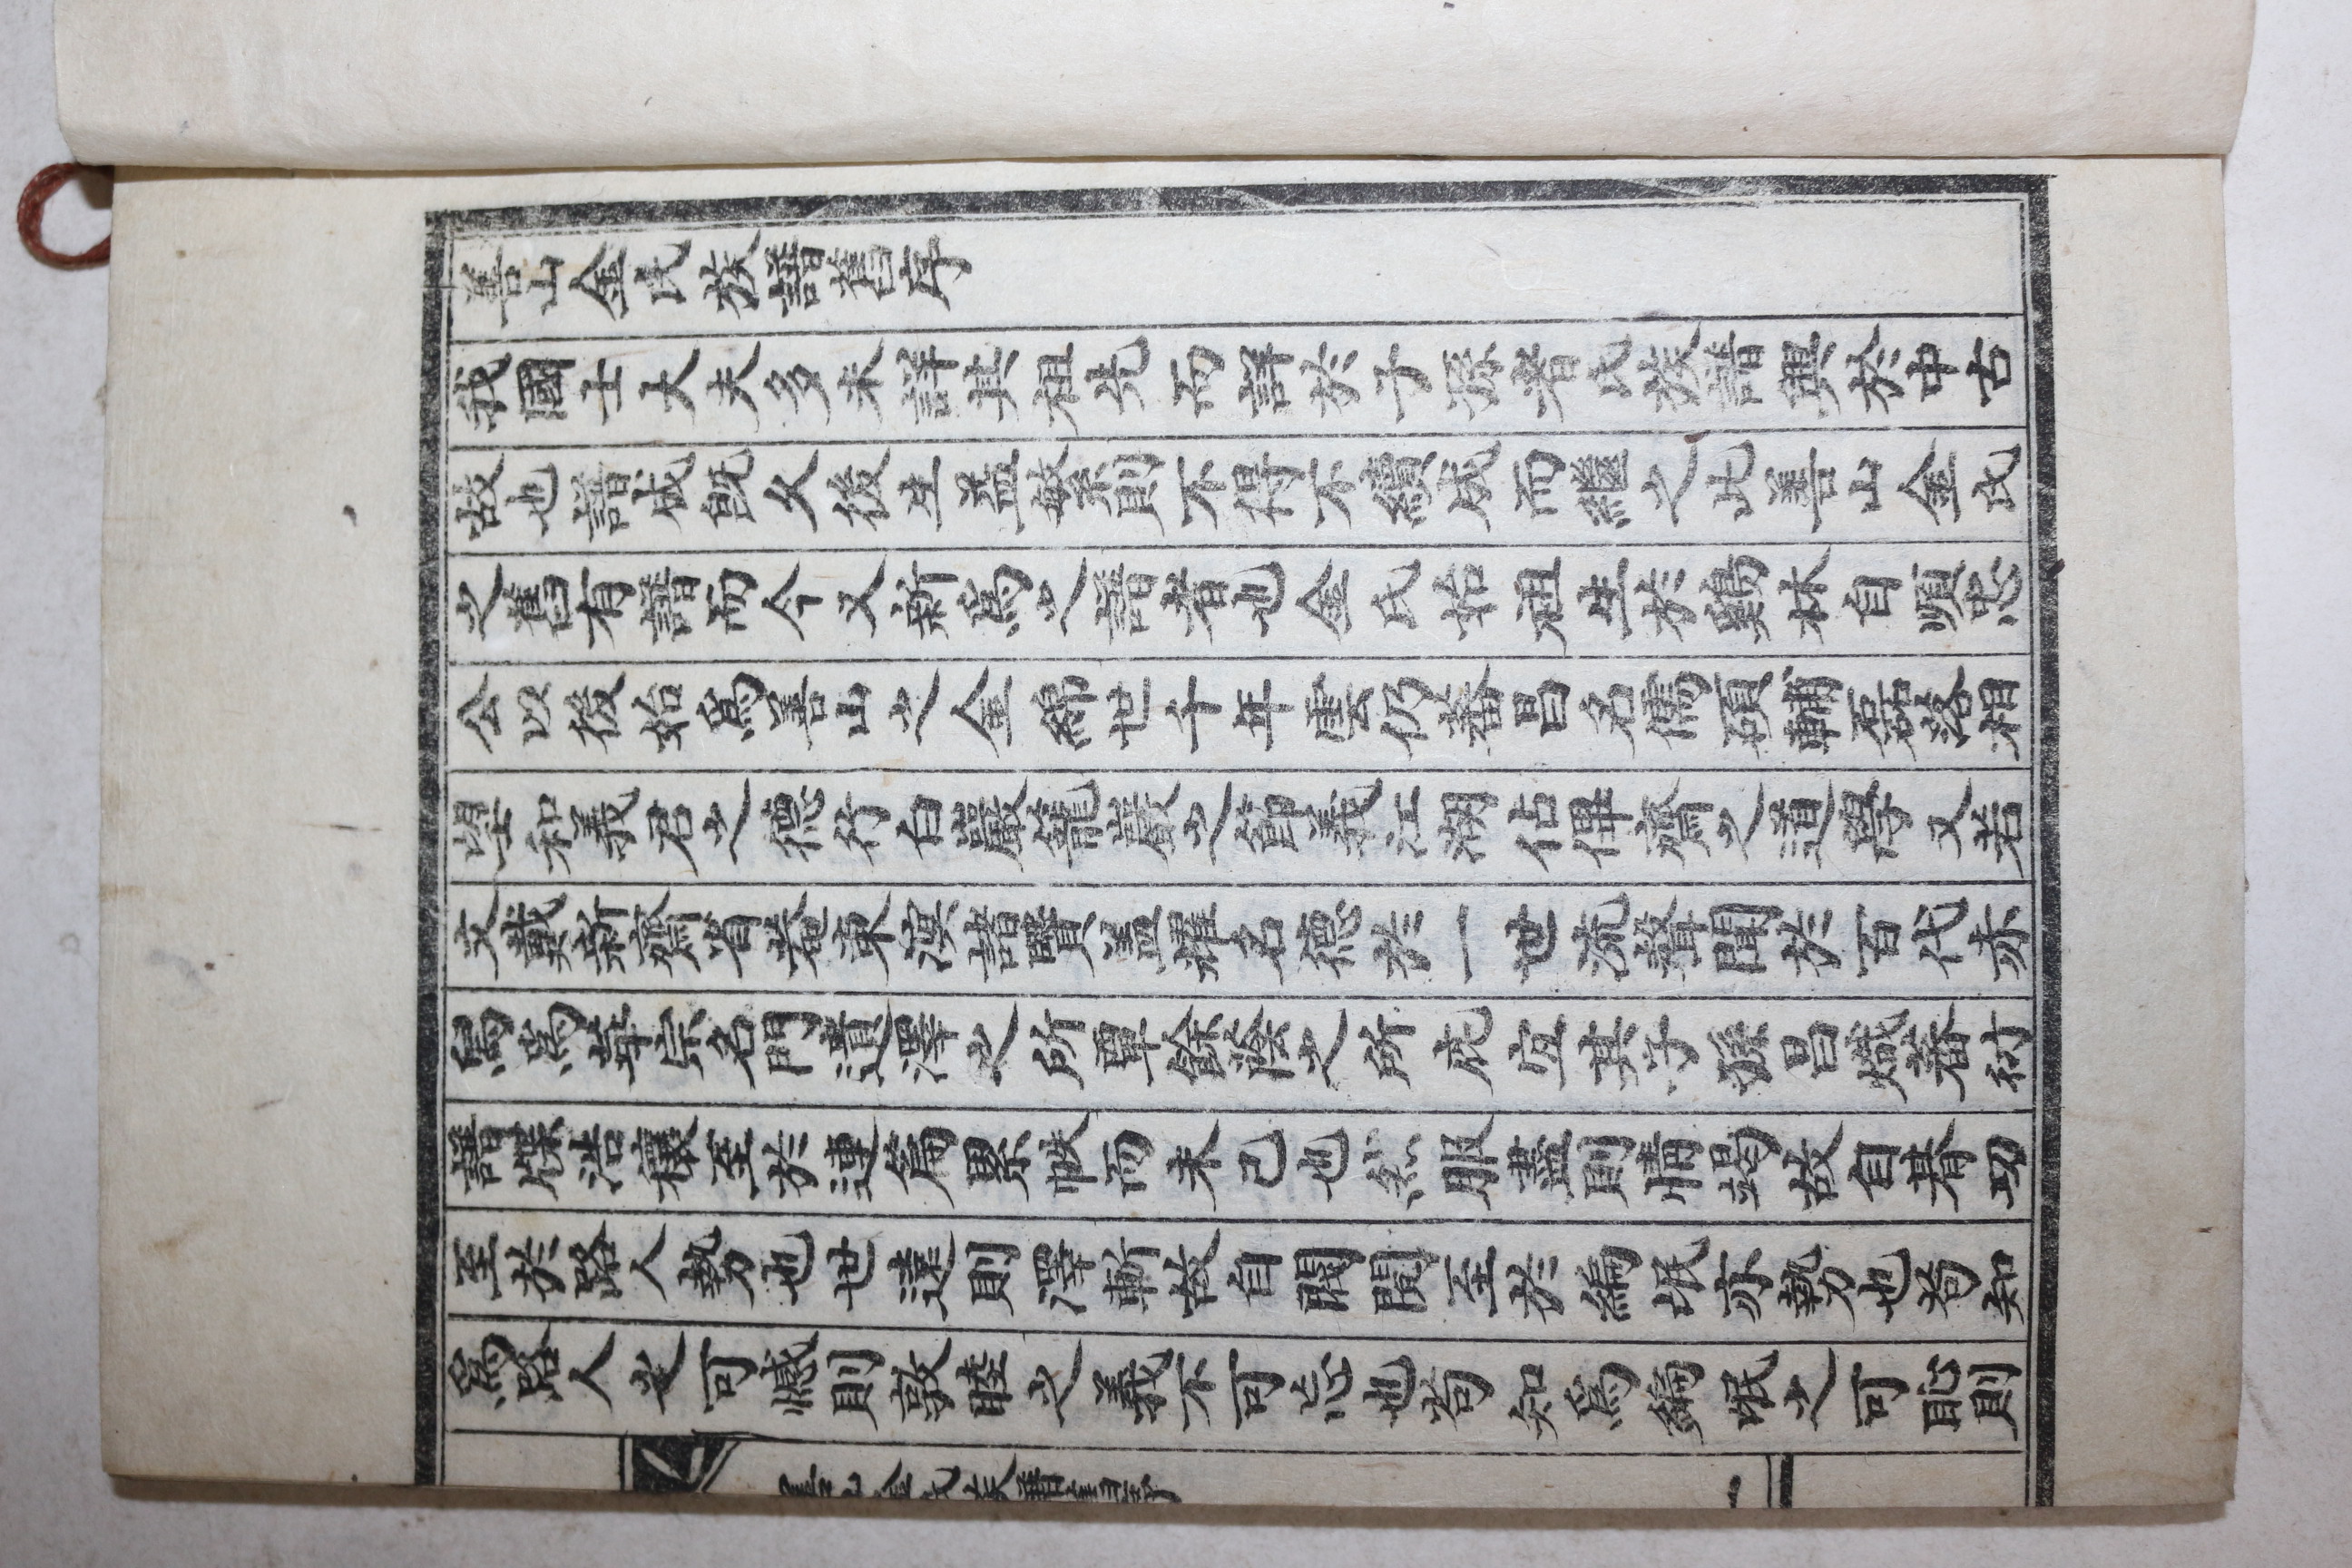 善山金氏族譜舊序
我國士大夫多未詳其祖先而詳於子孫者氏族譜興於中古
故也譜成旣久後生益繁則不得不續成而繼之此善山金氏
之舊有譜而今又新爲之譜者也金氏始祖生於鷄林自順忠
公以後始爲善山之金綿世千年雲仍蕃昌名儒碩輔磊落相
望和義君之德行白巖籠巖之節義江湖佔僤齋之道學又若
文戴新齋省菴東溟諸賢盖耀名德於一世流聲聞於百代赤
舃爲華宗名門遺澤之所覃餘蔭之所庇宜其子孫昌熾蕃衍
譜牒浩穰至於連篇累帙而未己也然服盡則情竭故自朞功
至於路人勢也世遠則澤斬故自閥閱至於編氓亦勢也苟知
爲路人之可憾則敦睦之義不可忘也苟知爲編氓之可恥則
善山金氏族譜舊序